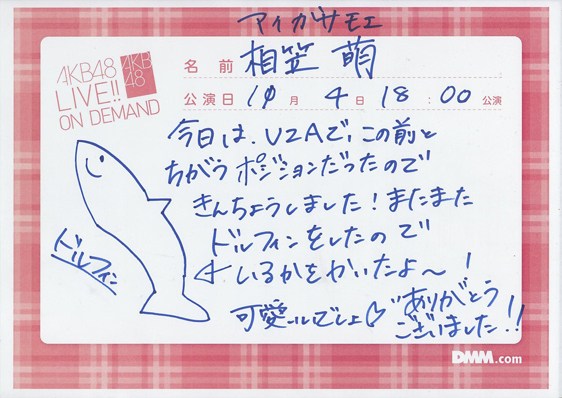 アイガサモエ
AKB48
LIVE!!
ON DEMAND
AKB
48
名前 相笠 萌
公演日 10月 4日 18:00 公演
今日は、UZAで、この前と
ちがうポジションだったので
きんちょうしました!またまた
ドルフィンをしたので
いるかをかいたよ〜!
ドルフィン
可愛いでしょ♡
ありがとう
ございました!!
DMM.com